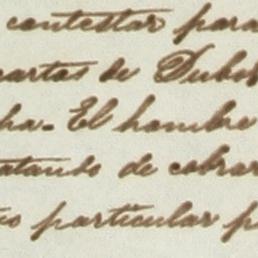 contestar para
cartas de Dubo
ha. El hombre
atando de cobrar
io particular p